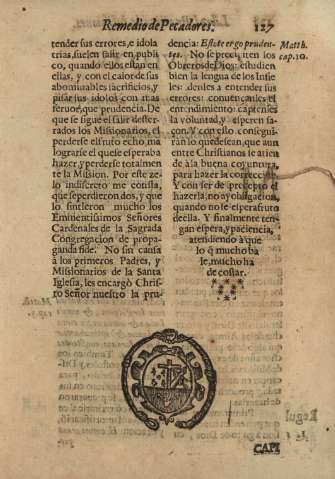 Remedio de Pecadores. 127
tender sus errores, e idola
trias, suelen salir en publi
co, quando ellos estan en
ellas, y con el calor de sus
abominables sacrificios, y
pisar sus idolos con mas
feruor, que prudencia. De
que se sigue el salir dester-
rados los Missionarios, el
perderse el fruto echo, ma
lograrse el que se esperaba
hazer, y perderse totalmen
te la Mission. Por este ze-
lo indiscreto me consta,
que se perdieron dos, y que
lo sintieron mucho los
Eminentissimos Señores
Cardenales de la Sagrada
Congregacion de propa-
ganda fide. No sin causa
à los primeros Padres, y
Missionarios de la Santa
Iglesia, les encargò Chris-
to Señor nuestro la pru-
dencia: Estote ergo pruden-
tes. No se preci en los
Obreros de Dios: estudien
bien la lengua de los Infie
les: denles a entender sus
errores: conuençanles el
entendimiento: captenles
la voluntad, y esperen sa-
çon. Y con esto consegui-
ràn lo que desean, que aun
entre Christianos se atien
de à la buena coyuntura,
para hazer la correccion.
Y con ser de precepto el
hazerla, no ay obligacion,
quando no se espera fruto
de ella. Y finalmente ten-
gan espera, y paciencia,
atendiendo à que
lo q mucho ba
le, mucho ha
de costar.
Matth.
cap. 10.
CAPI